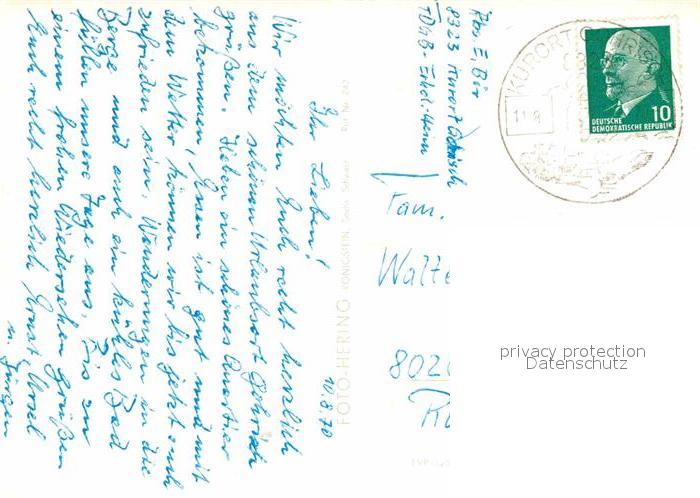 10.8.70
Ihr Lieben!
Wir möchten Euch recht herzlich
aus dem schönen Urlaubsort Gohrisch
grüßen. Haben ein schönes Quartier
bekommen, Essen ist gut und mit
dem Wetter können wir bis jetzt auch
zufrieden sein. Wanderungen in die
Berge und auch ein kühles Bad
füllen unsere Tage aus. Bis zu
einem frohen Wiedersehen grüßen
Euch recht herzlich Ernst, Ursel
u. Jürgen
FOTO-HERING KÖNIGSTEIN, Sächs. Schweiz
Abs. E. Bär
8323 Kurort Gohrisch
FDGB-Erhol.-Heim
KURORT GOHRISCH
11.8.
10
DEUTSCHE
DEMOKRATISCHE REPUBLIK
Fam.
Walte
802
privacy protection
Datenschutz